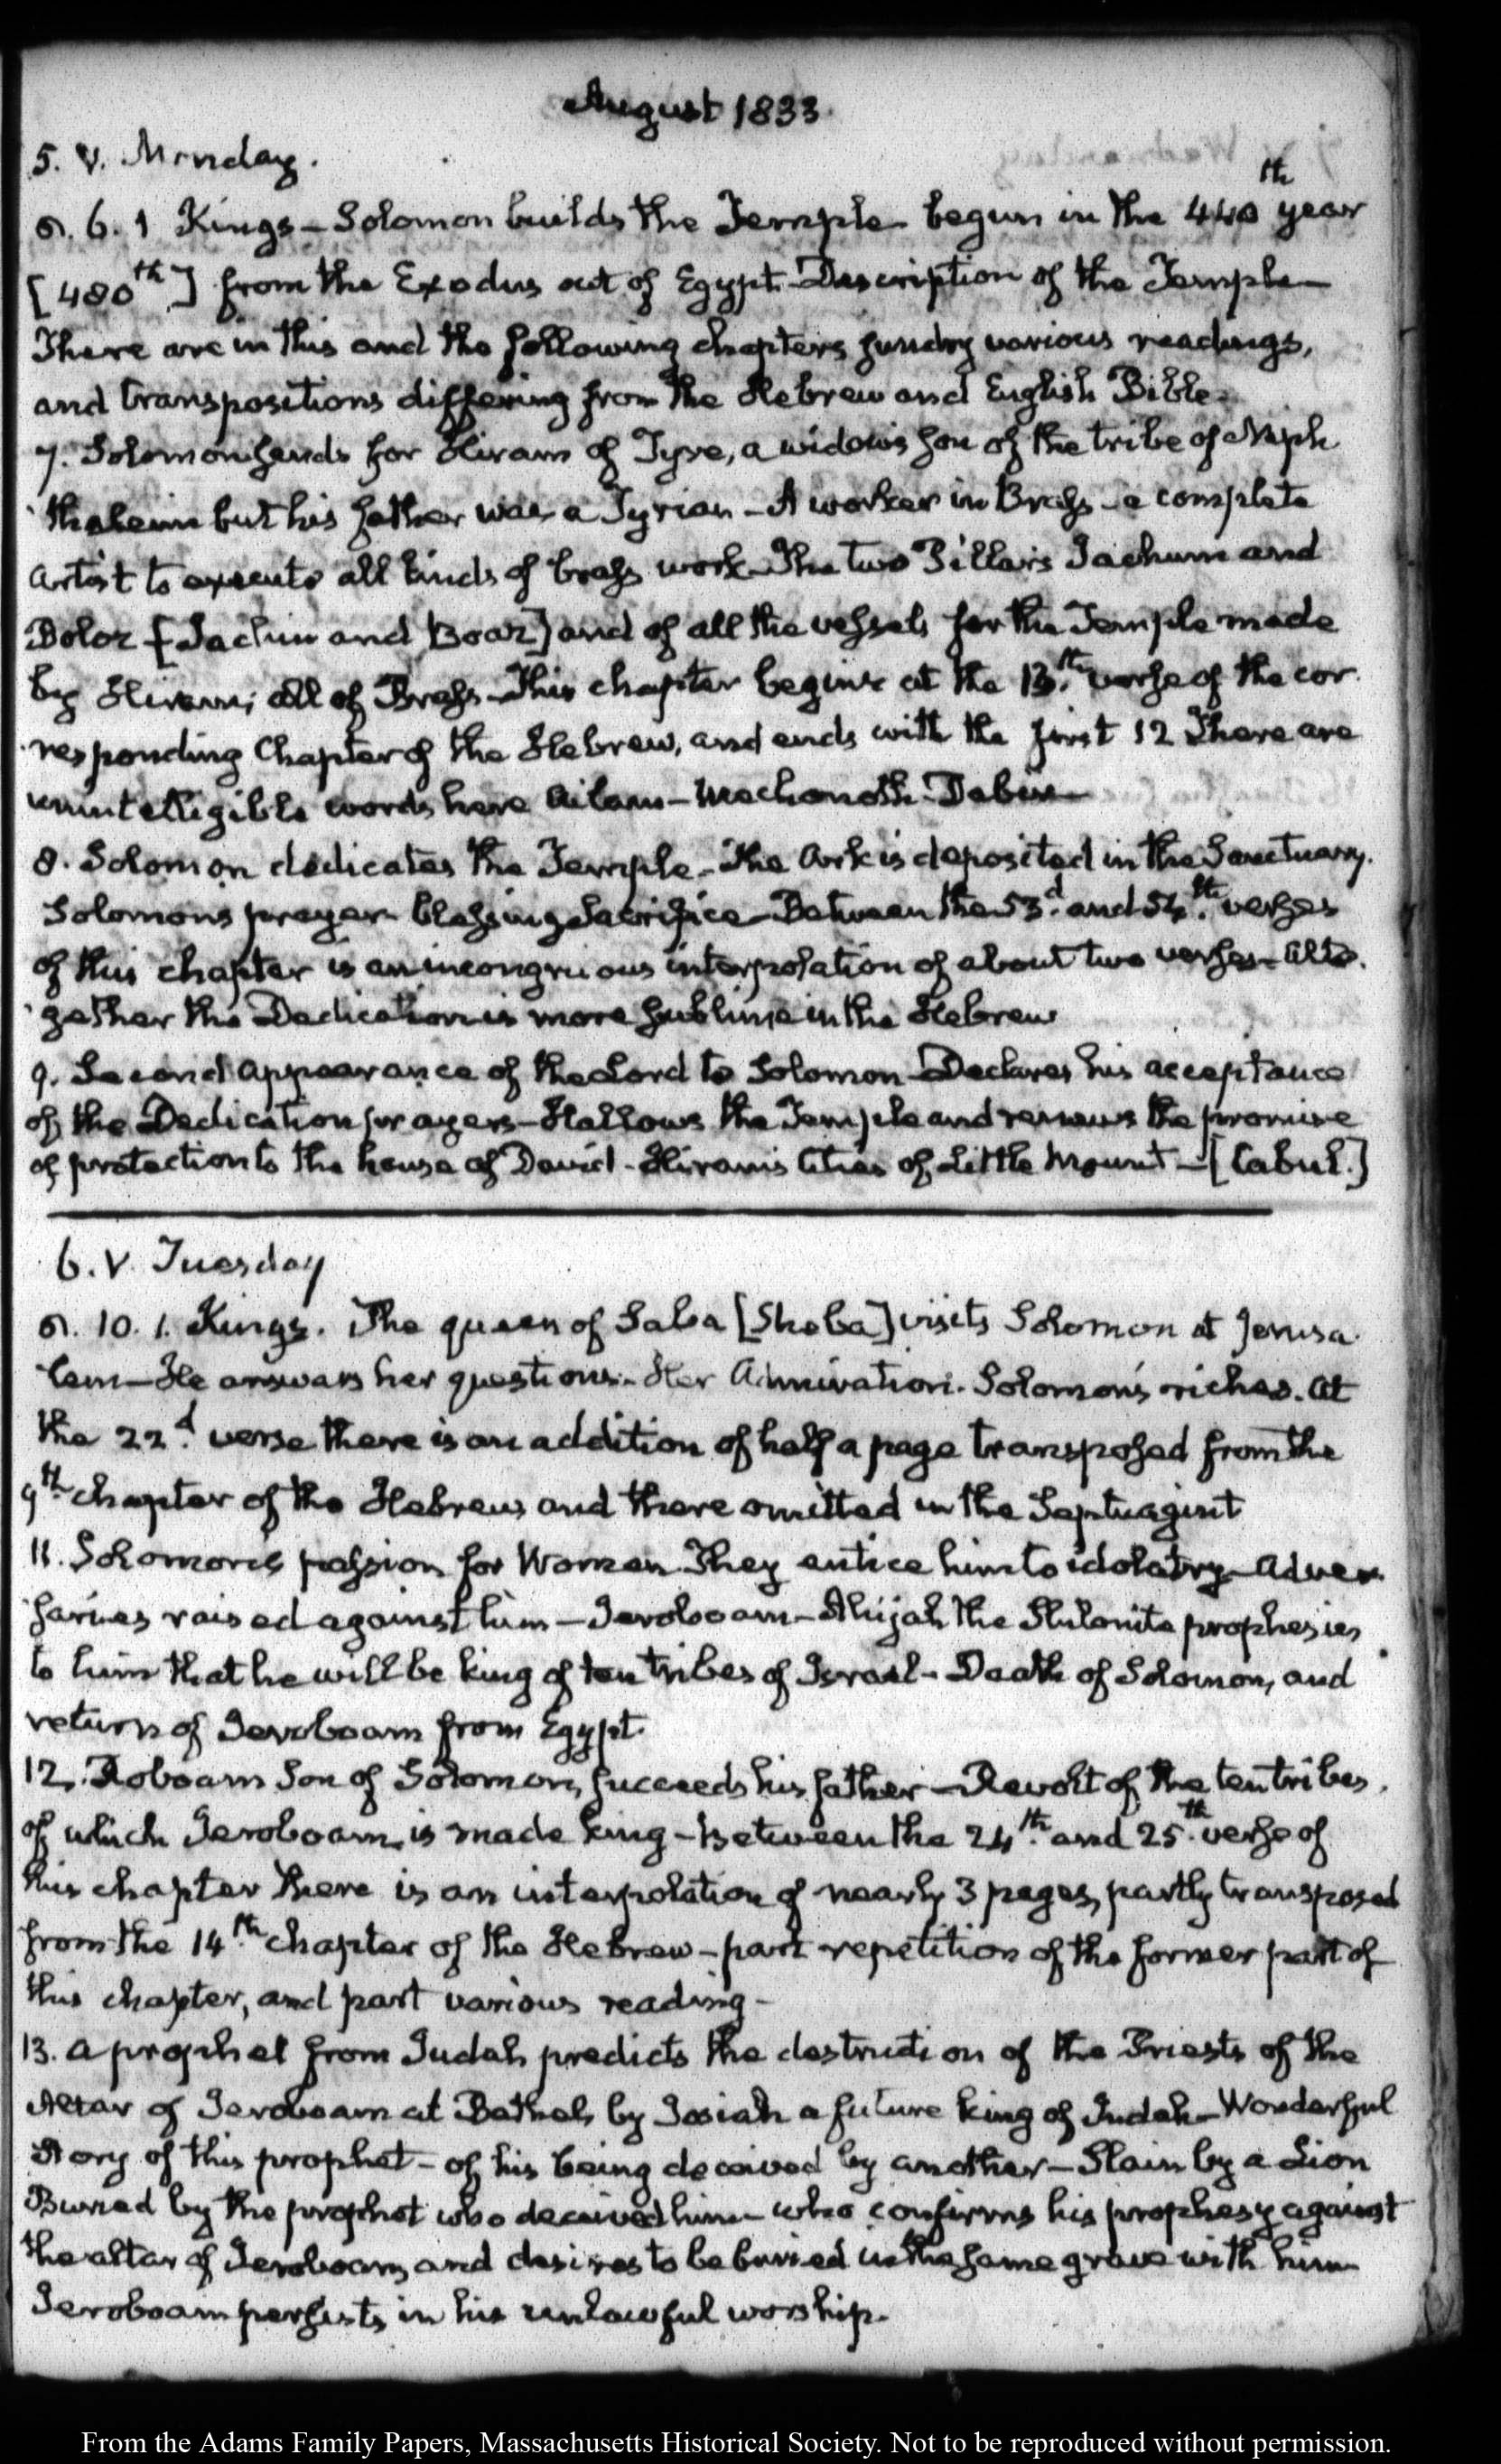 August 1833.
5. V. Monday.
6. 1 Kings – Solomon builds the Temple – begun in the 440th year
[480th] from the Exodus out of Egypt – Description of the Temple –
There are in this and the following chapters sundry various readings,
and transpositions differing from the Hebrew and English Bible –
7. Solomon sends for Hiram of Tyre, a widow's son of the tribe of Naph
thaleim but his father was a Tyrian – A worker in Brass – a complete
artist to execute all kinds of brass work – The two Pillars Jachum and
Boloz [Jachin and Boaz] and of all the vessels for the Temple made
by Hiram; all of Brass – This chapter begins at the 13th. verse of the cor-
responding Chapter of the Hebrew, and ends with the first 12 There are
unintelligible words here Ailam – Mechonoth – Dabir –
8. Solomon dedicates the Temple – The Ark is deposited in the Sanctuary.
Solomon's prayer – blessing – Sacrifice – Between the 53d. and 54th. verses
of this chapter is an incongruous interpolation of about two verses – Alto-
gether the Dedication is more sublime in the Hebrew
9. Second appearance of the Lord to Solomon – Declares his acceptance
of the Dedication prayers – Hallows the Temple and renews the promise
of protection to the house of David – Hiram's Cities of Little Mount – [Cabul.]
6. V. Tuesday
10. 1. Kings. The queen of Saba [Sheba] visits Solomon at Jerusa-
lem – He answers her questions – Her Admiration. Solomon's riches. At
the 22d. verse there is an addition of half a page transposed from the
9th. chapter of the Hebrew and there omitted in the Septuagint
11. Solomon's passion for Women They entice him to idolatry – Adver-
saries raised against him – Jeroboam – Ahijah the Shilonite prophesies
to him that he will be king of ten tribes of Israel – Death of Solomon, and
return of Jeroboam from Egypt.
12. Roboam Son of Solomon, succeeds his father – Revolt of the ten tribes,
of which Jeroboam is made king – Between the 24th. and 25th. verse of
this chapter there is an interpolation of nearly 3 pages, partly transposed
from the 14th. chapter of the Hebrew – part repetition of the former part of
this chapter, and part various reading –
13. A prophet from Judah predicts the destruction of the Priests of the
Altar of Jeroboam at Bethel, by Josiah a future king of Judah – Wonderful
Story of this prophet – of his being deceived by another – Slain by a Lion
Buried by the prophet who deceived him – who confirms his prophesy against
the altar of Jeroboam, and desires to be buried in the same grave with him
Jeroboam persists in his unlawful worship.
From the Adams Family Papers, Massachusetts Historical Society. Not to be reproduced without permission.